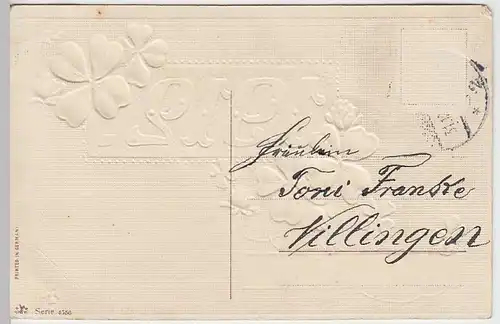 Fräulein
Toni Franke
Villingen
PRINTED IN GERMANY
Serie